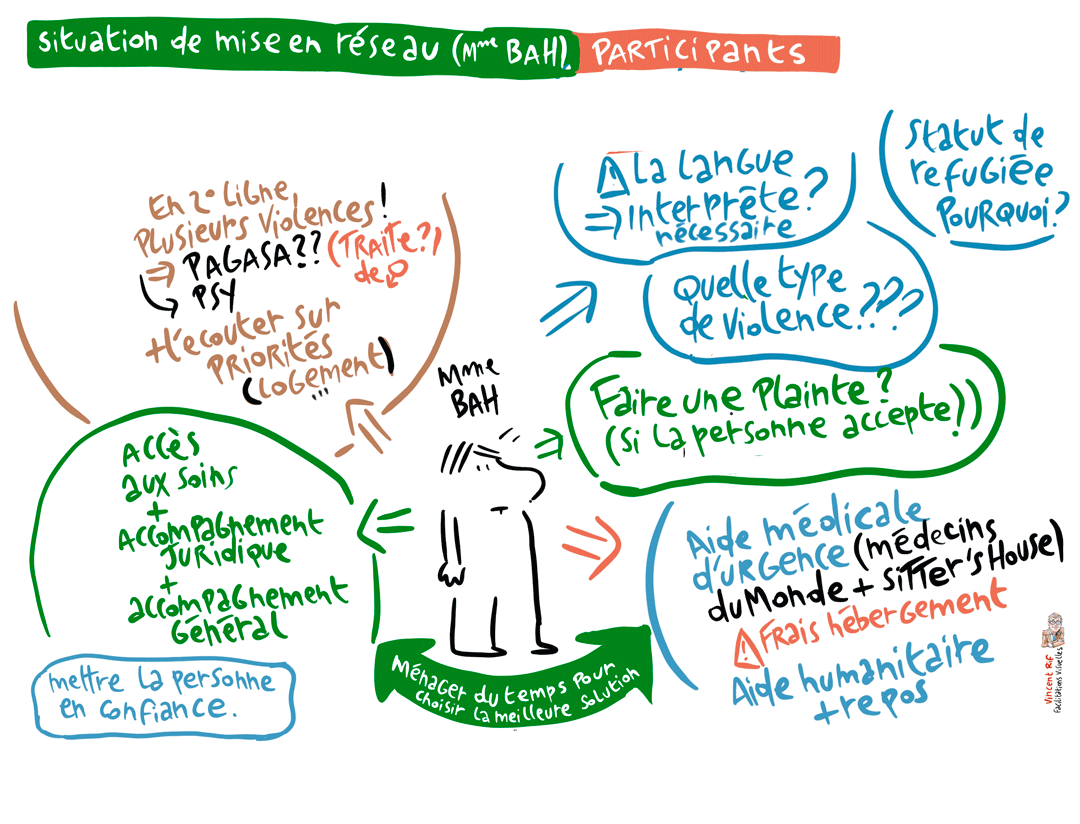 situation de mise en réseau (Mme BAH). PARTICIPANTS
En 2° Ligne
PLUSIEURS VIOLENCES!
⇒ PAGASA?? (TRAITE?)
de
↳ PSY
+L'ecouter sur
PRIORITÉS
(LOGEMENT)
...
Mme
BAH
⚠ La Langue
⇒ Interprête?
nécessaire
Statut de
refugiée
POURQUOI?
Quelle type
de violence???
Faire une Plainte?
(si la personne accepte!))
Accès
aux soins
+
Accompagnement
JURIDIQUE
+
accompagnement
Général
mettre la personne
en confiance.
Ménager du temps pour
choisir la meilleure solution
Aide médicale
d'URGENCE (médecins
du Monde + SITTER'S HOUSE)
⚠ Frais hébergement
Aide humanitaire
+ repos
Vincent Rif
Facilitations Visuelles